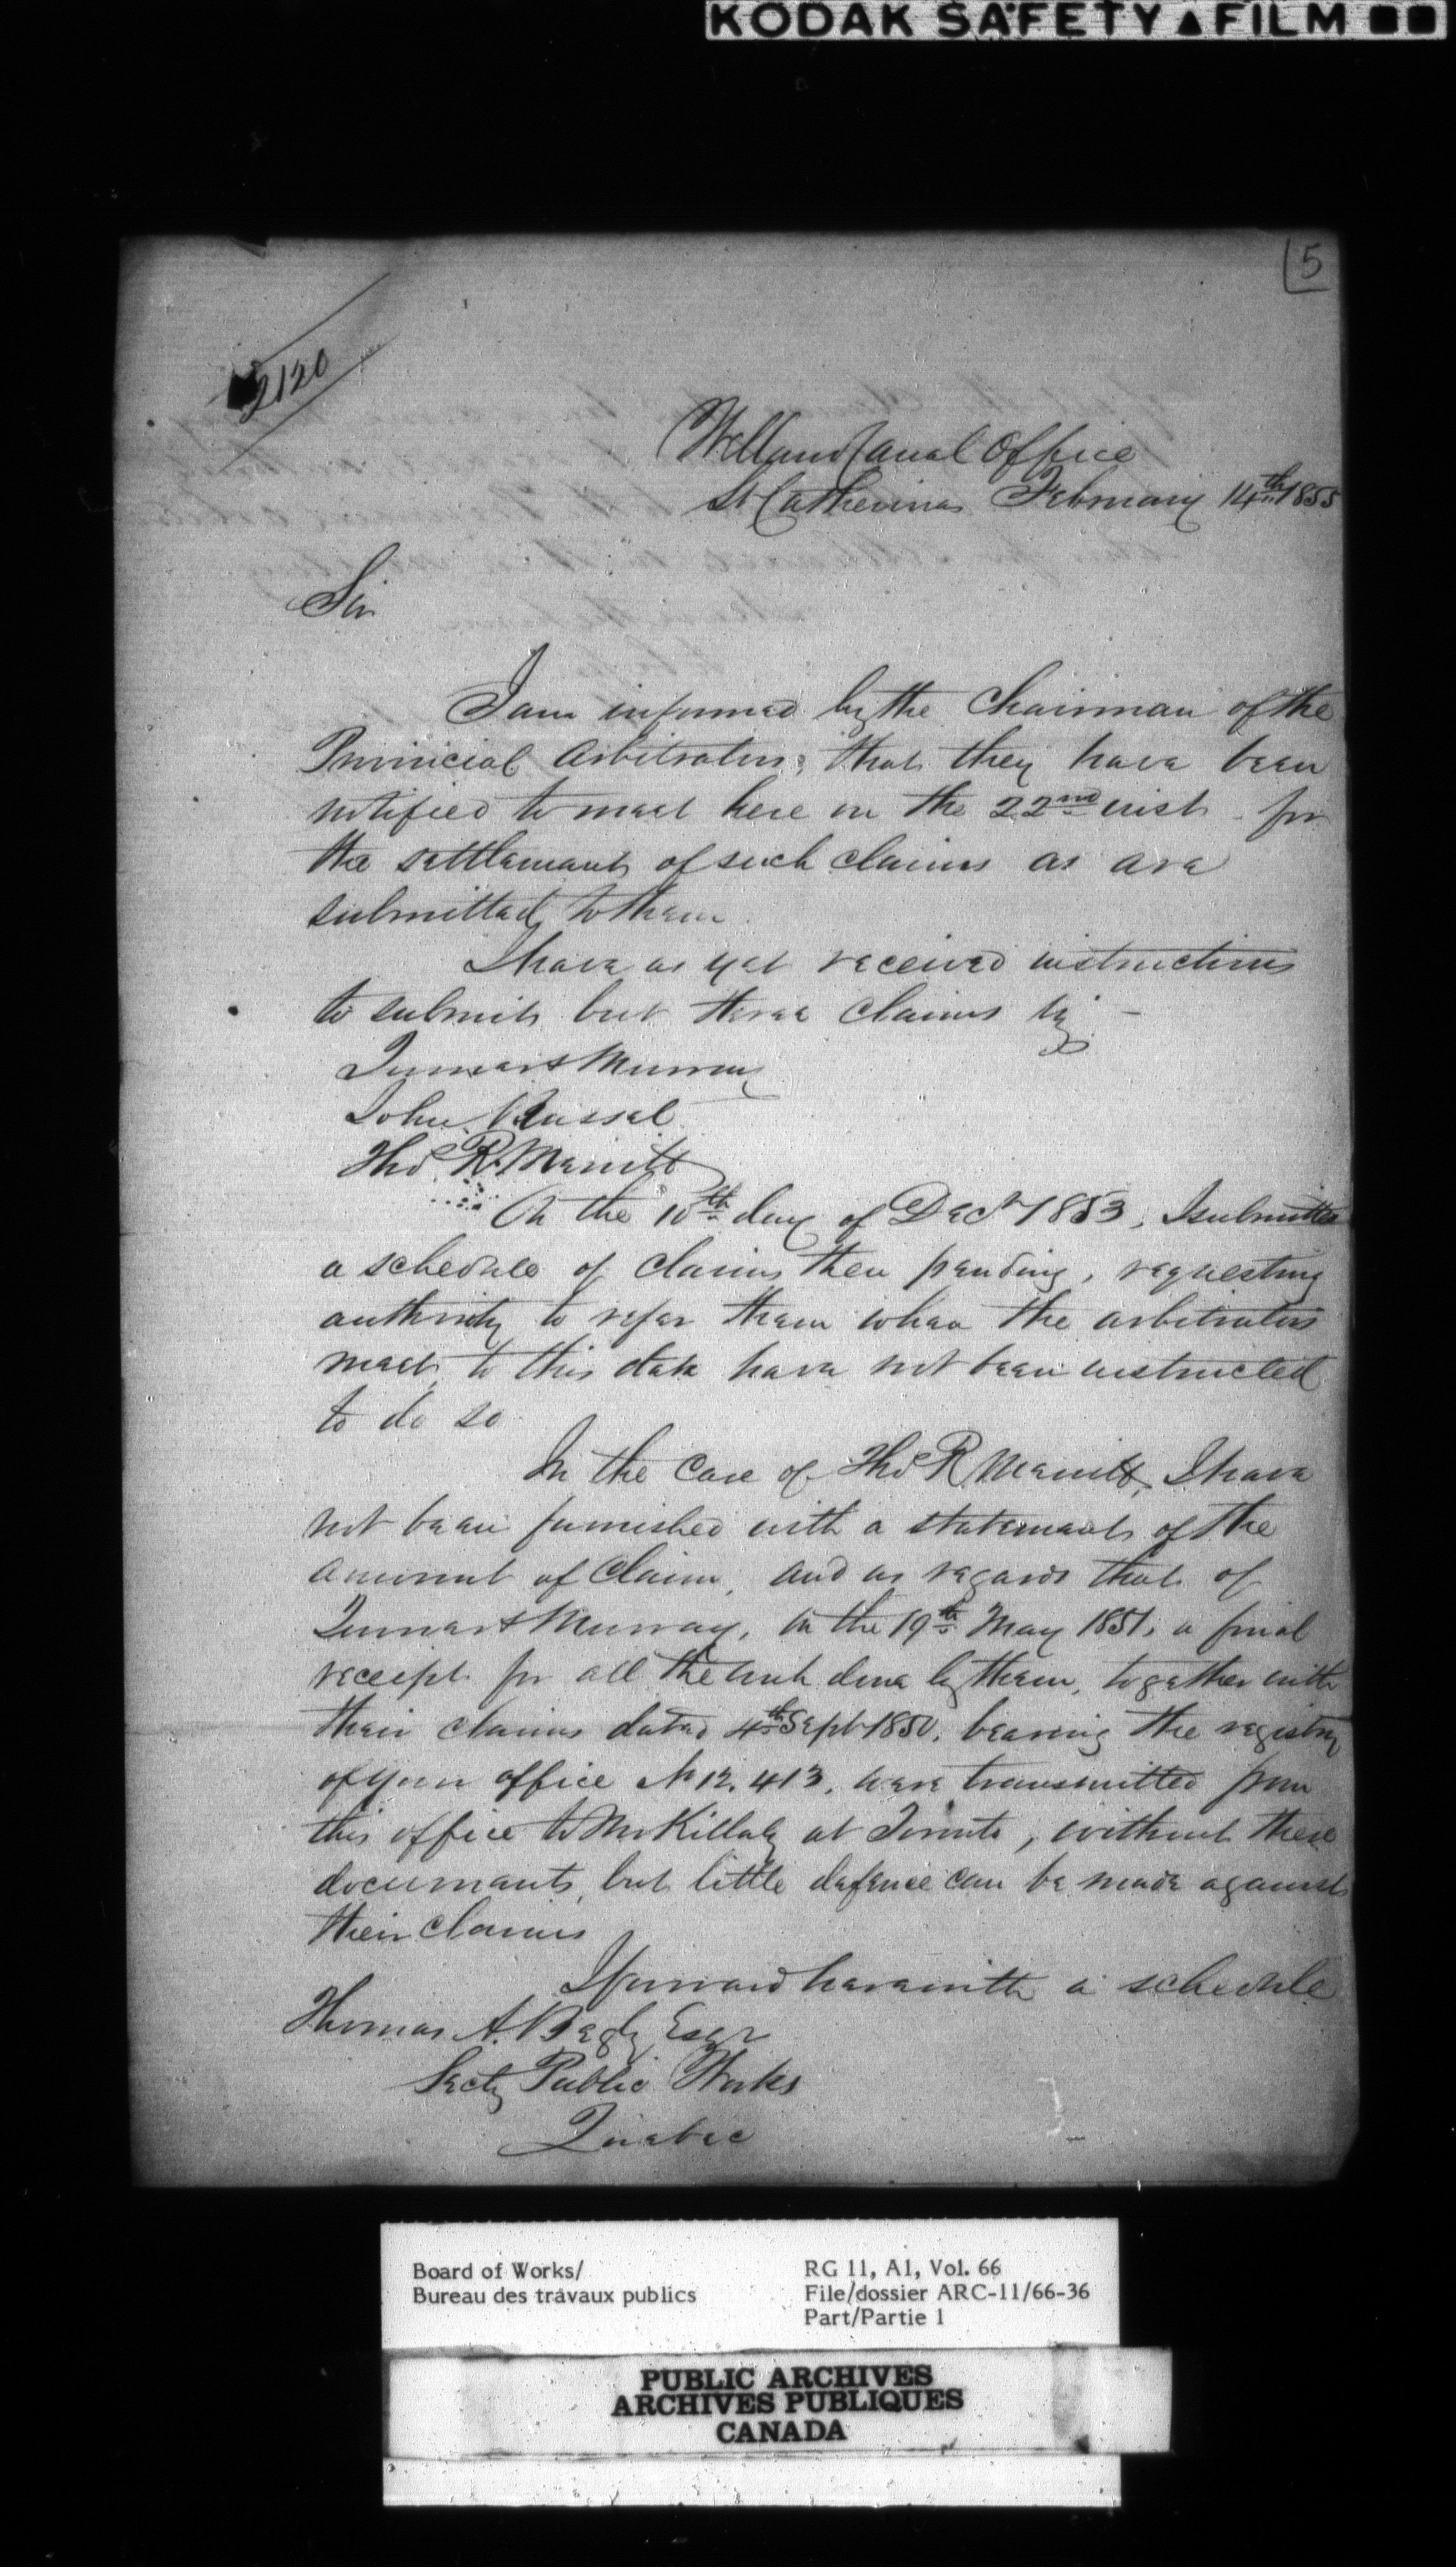 KODAK SAFETY ▲ FILM ■■
5
2120
Welland Canal Office
St Catherines February 14th 1855
Sir
I am informed by the Chairman of the
Provincial Arbitrators, that they have been
notified to meet here on the 22nd inst for
the settlement of such claims as are
submitted to them
I have as yet received instructions
to submit but three claims viz –
Turner & Murray
John Russel
Thos R. Merritt
On the 10th day of Decr 1853, I submitted
a schedule of claims then pending, requesting
authority to refer them when the arbitrators
meet, to this date have not been instructed
to do so
In the case of Thos R Merritt, I have
not been furnished with a statement of the
amount of claim, and as regards that of
Turner & Murray, on the 19th May 1851, a final
receipt for all the work done by them, together with
their claims dated 4th Sept 1850, bearing the registry
of your office No 12,413, were transmitted from
this office to Mr Killaly at Toronto, without these
documents, but little defence can be made against
their claims
I forward herewith a schedule
Thomas A. Begly Esqr
Secty Public Works
Quebec
Board of Works/
Bureau des travaux publics
RG 11, A1, Vol. 66
File/dossier ARC-11/66-36
Part/Partie 1
PUBLIC ARCHIVES
ARCHIVES PUBLIQUES
CANADA